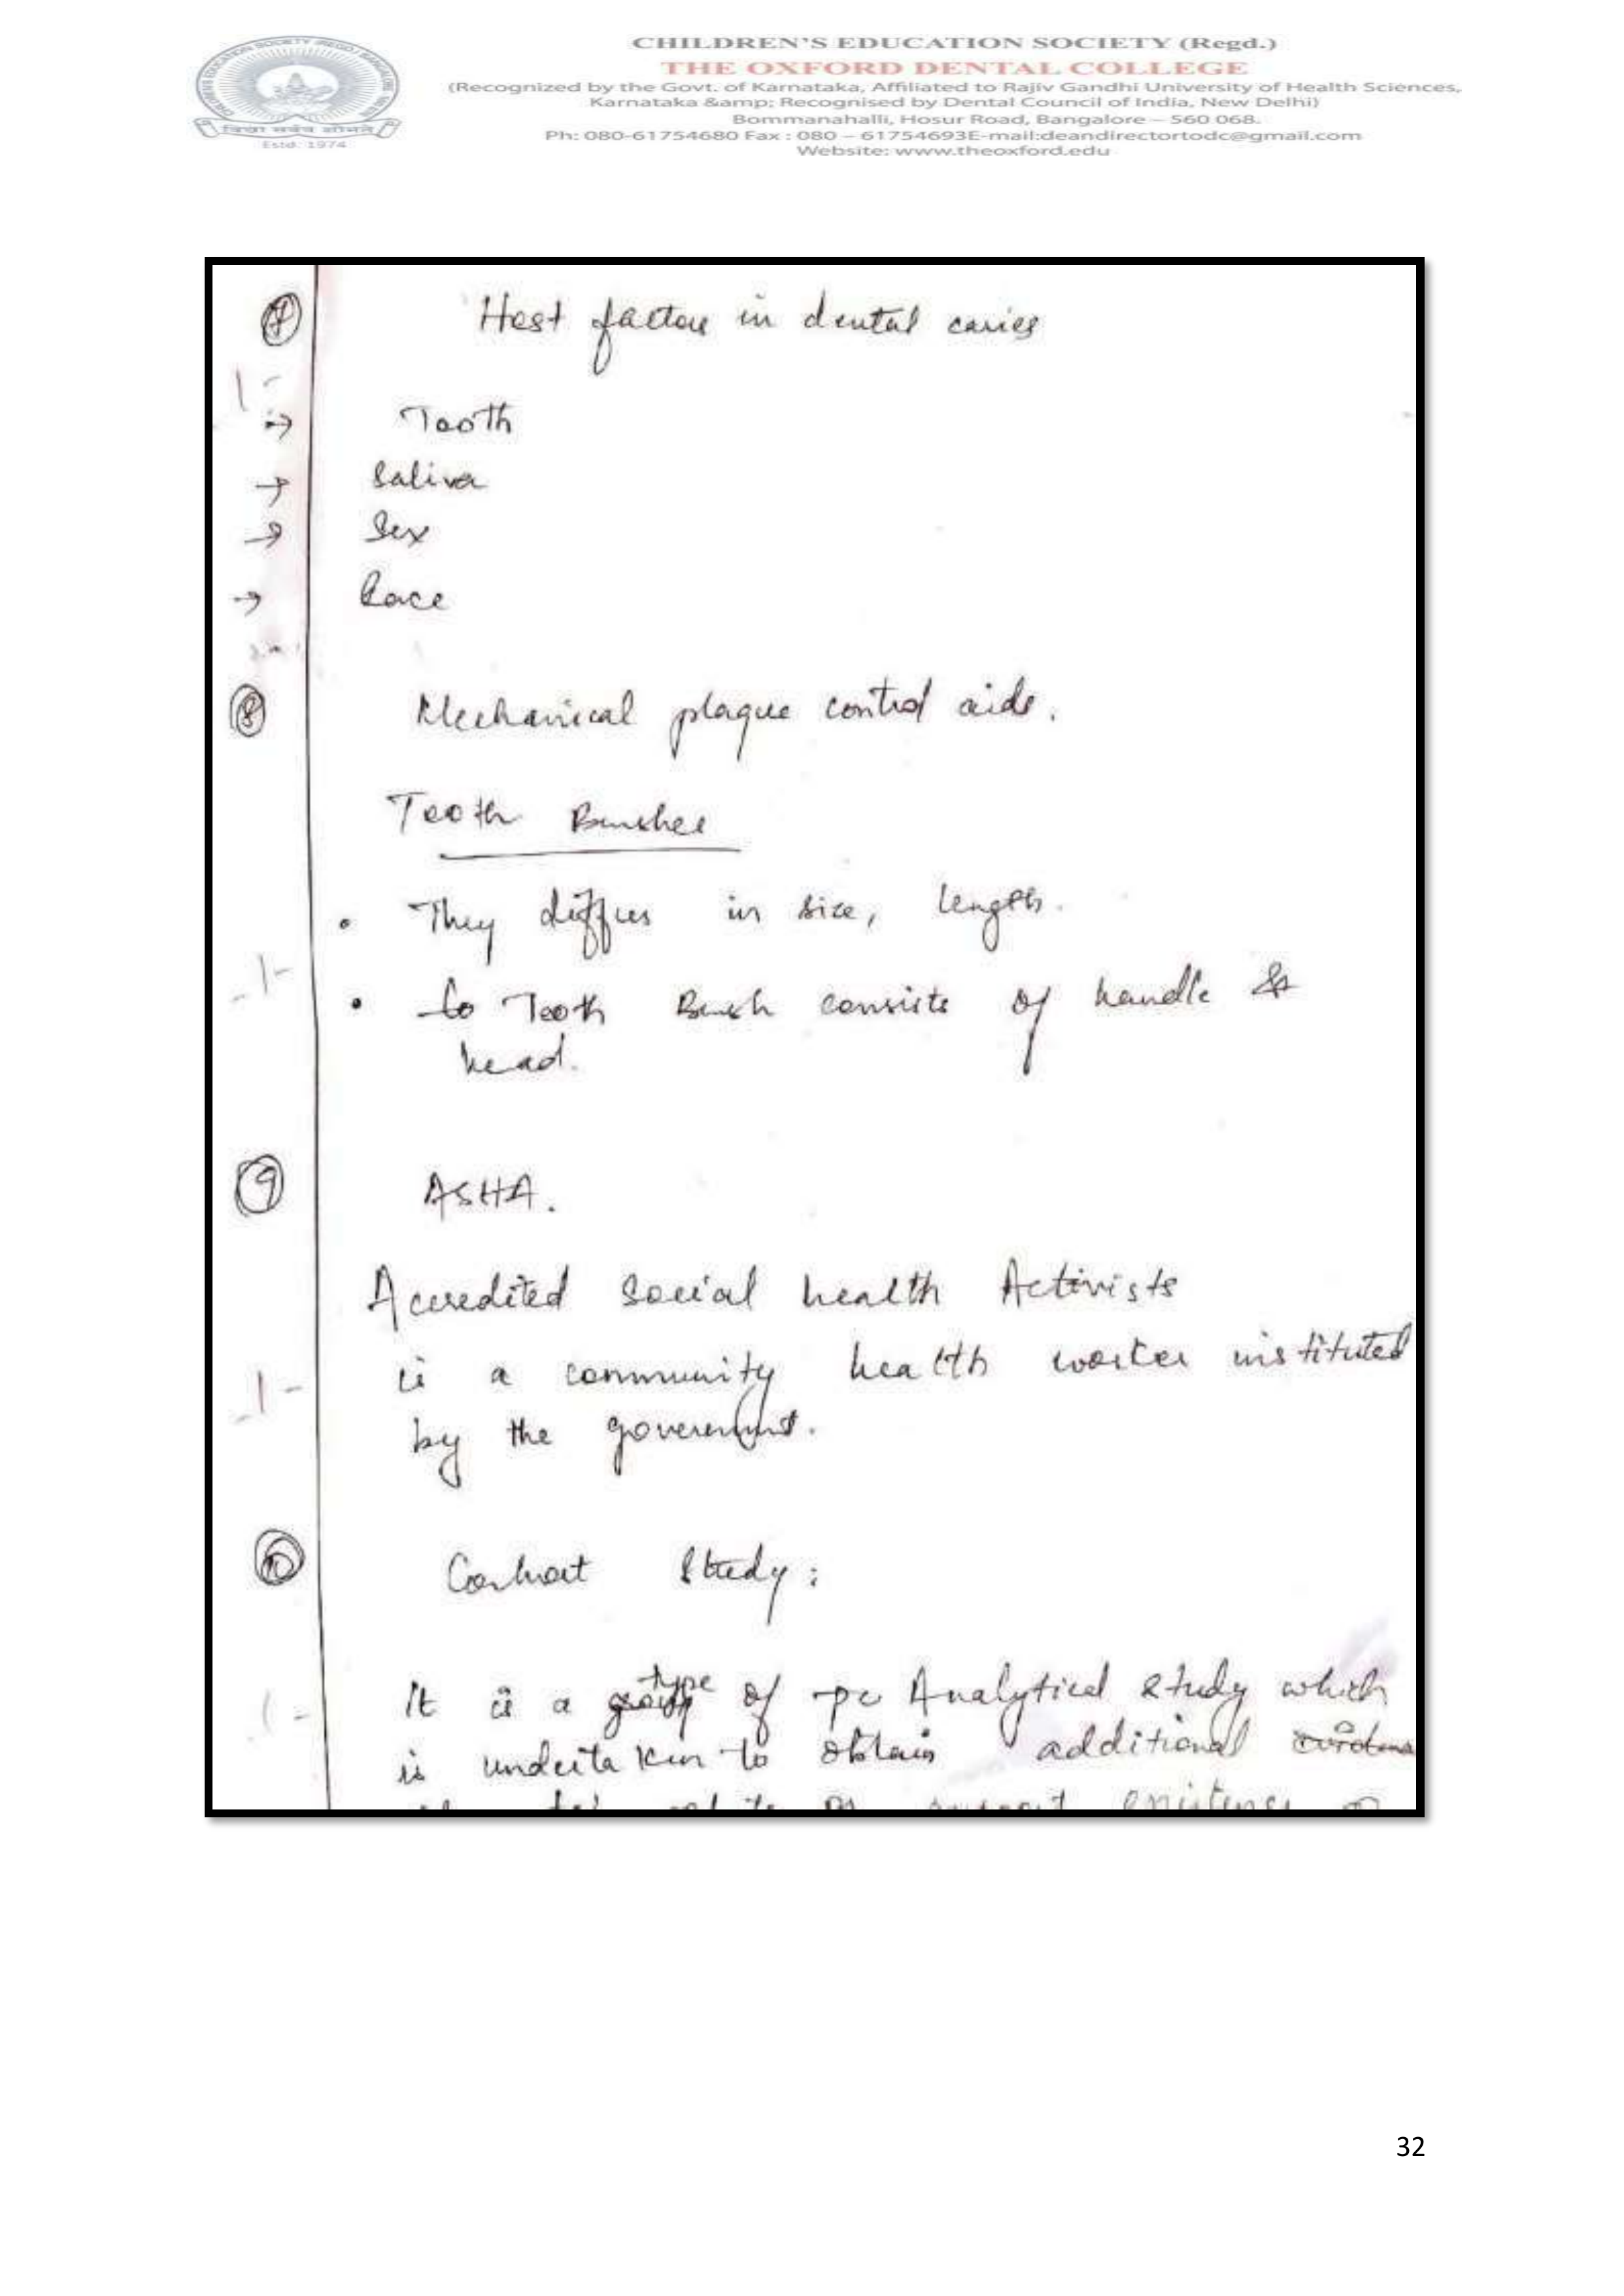 CHILDREN'S EDUCATION SOCIETY (Regd.)
THE OXFORD DENTAL COLLEGE
(Recognized by the Govt. of Karnataka, Affiliated to Rajiv Gandhi University of Health Sciences,
Karnataka &amp; Recognised by Dental Council of India, New Delhi)
Bommanahalli, Hosur Road, Bangalore – 560 068.
Ph: 080-61754680 Fax : 080 – 61754693E-mail:deandirectortodc@gmail.com
Website: www.theoxford.edu
Estd. 1974
7 Host factors in dental caries
1-
→ Tooth
→ Saliva
→ Sex
→ Race
8 Mechanical plaque control aids.
Tooth Brushes
• They differs in size, length.
-1-
• to Tooth Brush consists of handle &
head.
9 ASHA.
Accredited Social health Activists
is a community health worker instituted
-1-
by the government.
10 Corhort Study:
It is a type of Analytical study which
1-
is undertaken to obtain additional
existence
32